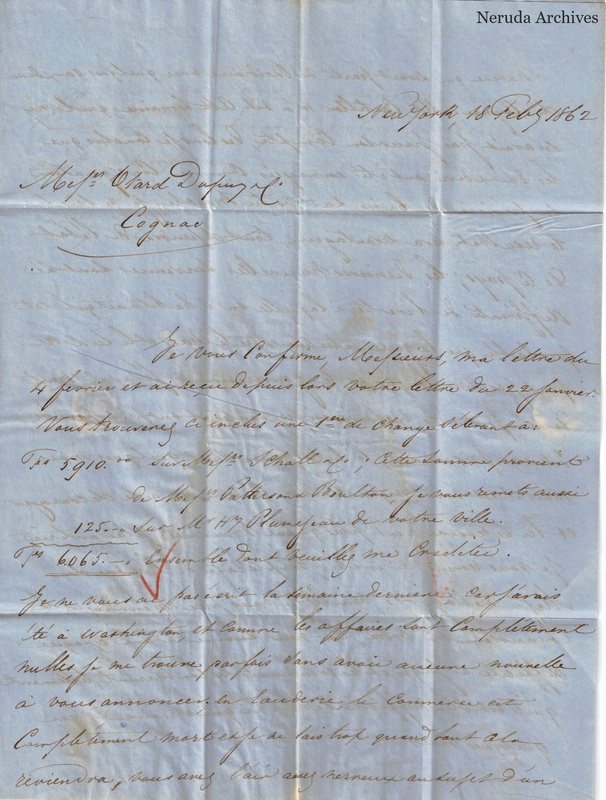 Neruda Archives
New York, 18 Feby 1862
Messrs Otard Dupuy & Co
Cognac
Je vous Confirme, Messieurs, ma lettre du
4 fevrier et ai reçu depuis lors votre lettre du 22 Janvier.
Vous trouverez ci inclus une 1ere de change s'élevant à:
5910. sur Messrs Schall & Co; cette somme provient
de Messrs Patterson & Boulton, je vous remets aussi
125.- sur Mr Hy Plumejeau de votre ville.
6065.- ensemble dont veuillez me Créditer.
Je ne vous ai pas écrit la semaine derniere, car j'avais
été à Washington et comme les affaires sont Complètement
nulles, je me trouve parfois sans avoir aucune nouvelle
à vous annoncer. en le commerce est
Complètement mort et je ne sais trop quand tout cela
reviendra, vous avez l'air assez nerveux au sujet d'un